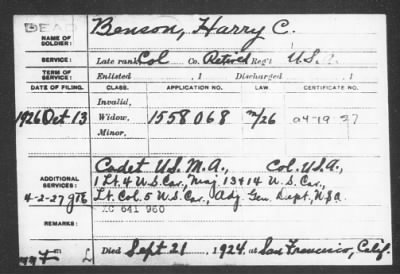 DEAD
NAME OF SOLDIER: Benson, Harry C.
SERVICE: Late rank Col Co. Retired Reg't U.S.A.
TERM OF SERVICE: Enlisted , 1 Discharged , 1
DATE OF FILING. CLASS. APPLICATION NO. LAW. CERTIFICATE NO.
Invalid,
1926 Oct 13 Widow, 1558068 27
Minor,
ADDITIONAL SERVICES: Cadet U.S.M.A., Col. U.S.A.,
1 Lt. 4 U.S. Cav., Maj. 13 & 14 U.S. Cav.,
4-2-27 Lt. Col. 5 U.S. Cav., Adj. Gen. Dept., U.S.A.
XC 641 960
REMARKS:
Died Sept 21, 1924, at San Francisco, Calif.